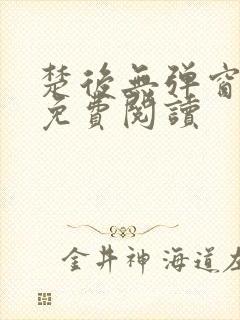 楚後無弹窗
免費閱讀
金井神海道左